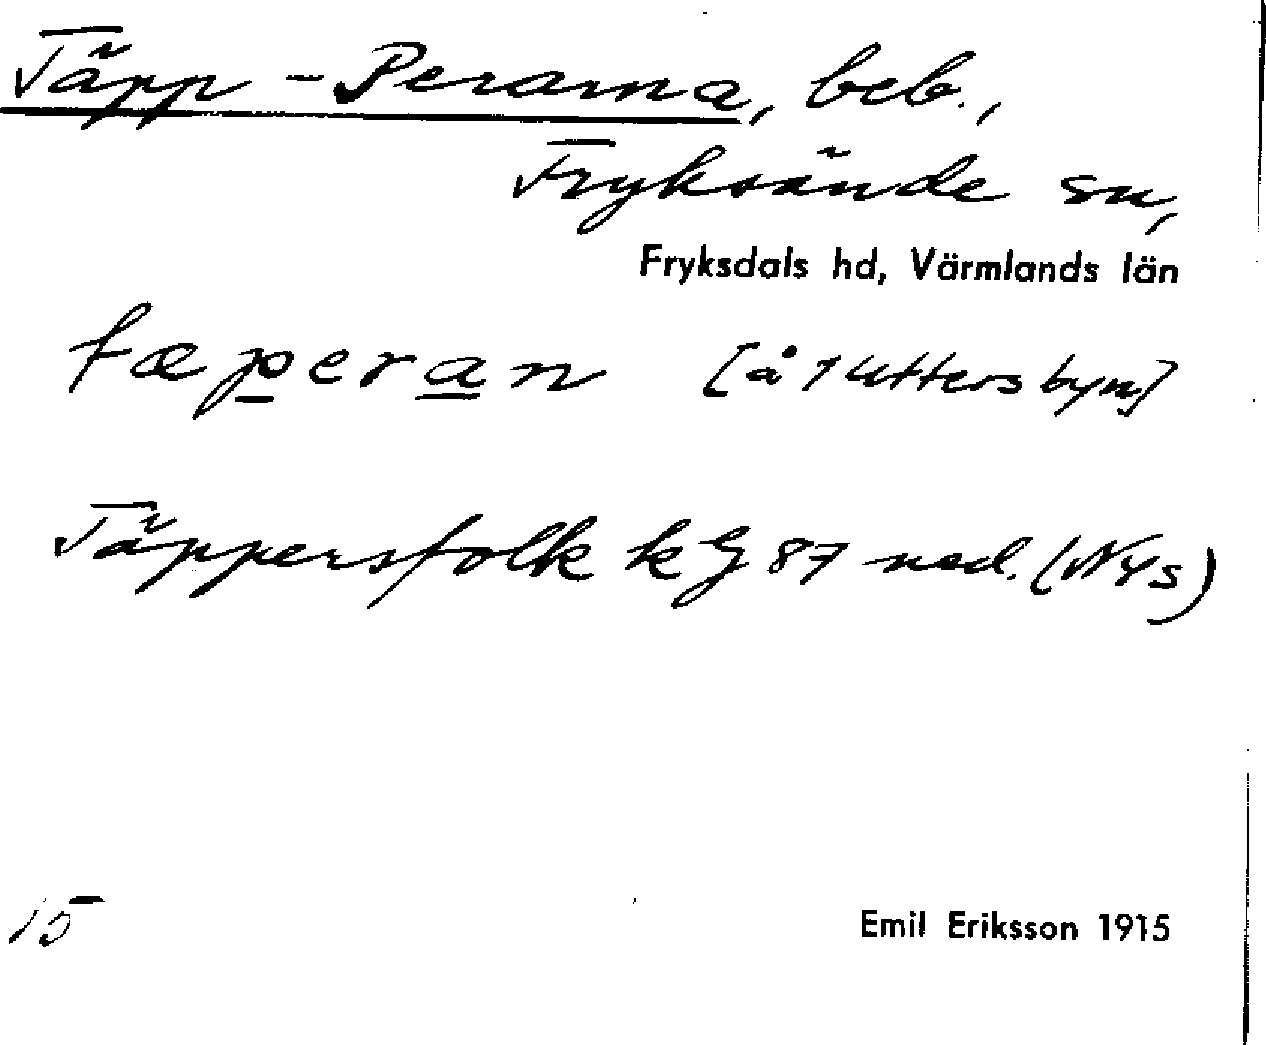 Täpp-Perarna, beb.,
Fryksände sn,
Fryksdals hd, Värmlands län
tæperan [å 1 Uttersbyn]
Täppersfolk k G 87 ned. (NYs)
15
Emil Eriksson 1915